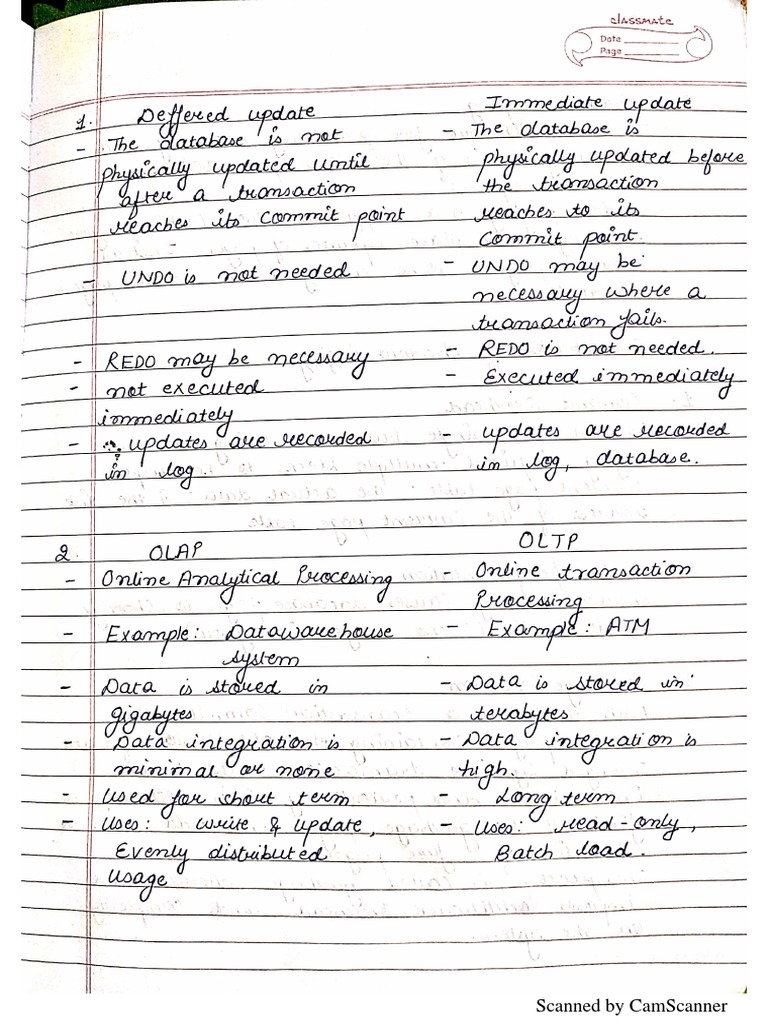 classmate
Date
Page
1. Deffered update
Immediate update
- The database is not
physically updated until
after a transaction
reaches its commit point
- The database is
physically updated before
the transaction
reaches to its
commit point.
- UNDO is not needed
- UNDO may be
necessary where a
transaction fails.
- REDO may be necessary
- REDO is not needed.
- not executed
immediately
- Executed immediately
- updates are recorded
in log.
- updates are recorded
in log, database.
2. OLAP
OLTP
- Online Analytical Processing
- Online transaction
Processing
- Example: Datawarehouse
system
- Example: ATM
- Data is stored in
gigabytes
- Data is stored in
terabytes
- Data integration is
minimal or none
- Data integration is
high.
- Used for short term
- Long term
- Uses: write & update,
Evenly distributed
usage
- Uses: read-only,
Batch load.
Scanned by CamScanner